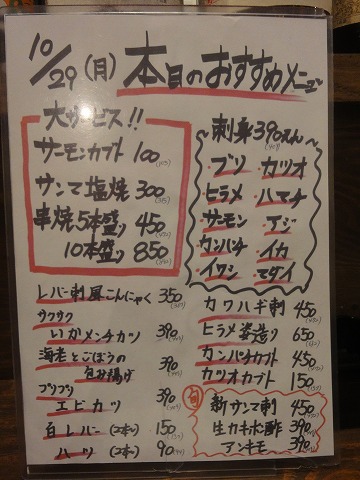 10/29(月) 本日のおすすめメニュー
大サービス!!
サーモンカブト 100
サンマ塩焼 300
串焼5本盛り 450
10本盛り 850
刺身390えん
ブリ カツオ
ヒラメ ハマチ
サーモン アジ
カンパチ イカ
イワシ マダイ
レバー刺風こんにゃく 350
サクサク
いかメンチカツ 390
海老とごぼうの
包み揚げ 390
プリプリ
エビカツ 390
白レバー(2本) 150
ハーツ(2本) 90
カワハギ刺 450
ヒラメ姿造り 650
カンパチカブト 450
カツオカブト 150
旬
新サンマ刺 450
生カキポン酢 390
アンキモ 390